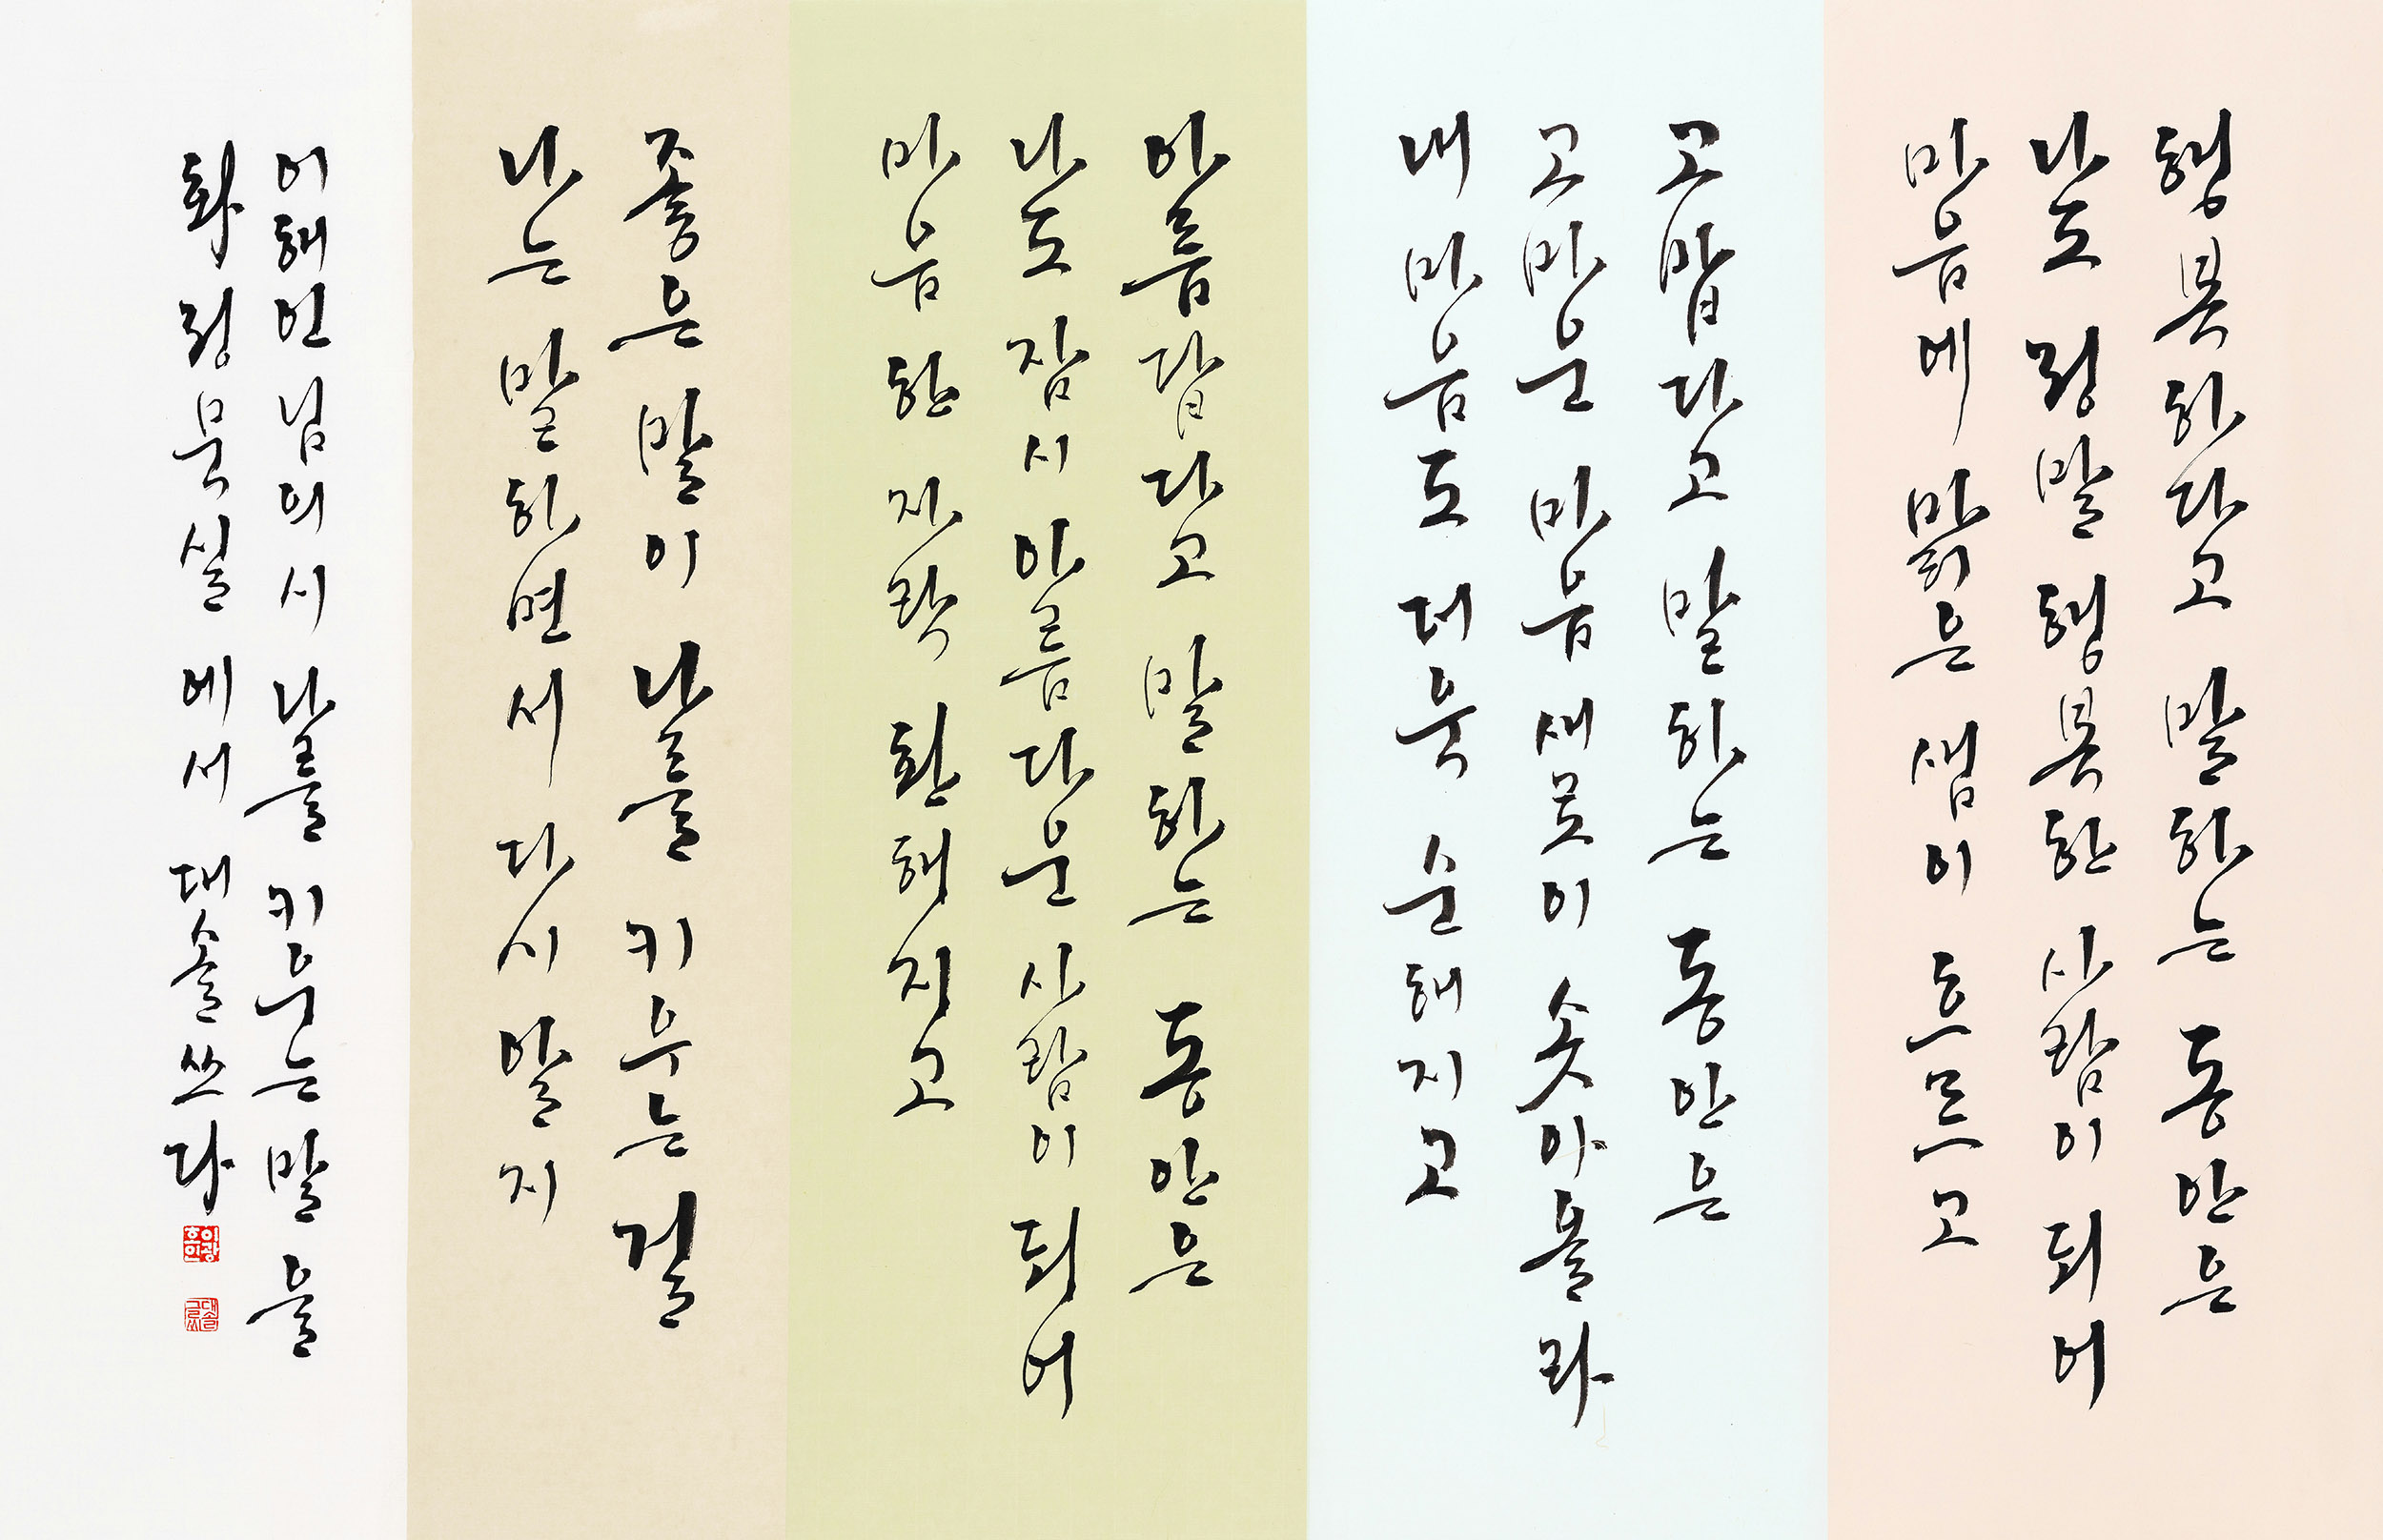 행복하다고 말하는 동안은
나도 정말 행복한 사람이 되어
마음에 맑은 샘이 흐르고
고맙다고 말하는 동안은
고마운 마음 새로이 솟아올라
내 마음도 더욱 순해지고
아름답다고 말하는 동안은
나도 잠시 아름다운 사람이 되어
마음 한 자락 환해지고
좋은 말이 나를 키우는 걸
나는 말하면서 다시 알지
이해인님의 시 나를 키우는 말을
화정묵실에서 대솔 쓰다